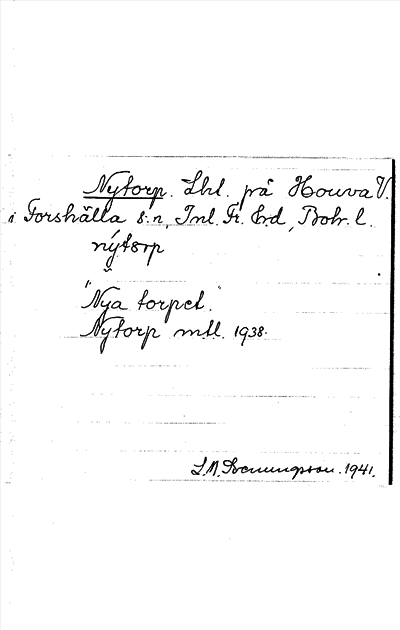 Nytorp. Lht. på Houva V.
i Forshälla s:n, Inl. Fr. hd, Boh. l.
nýtorp
"Nya torpet."
Nytorp mtl. 1938.
1941.